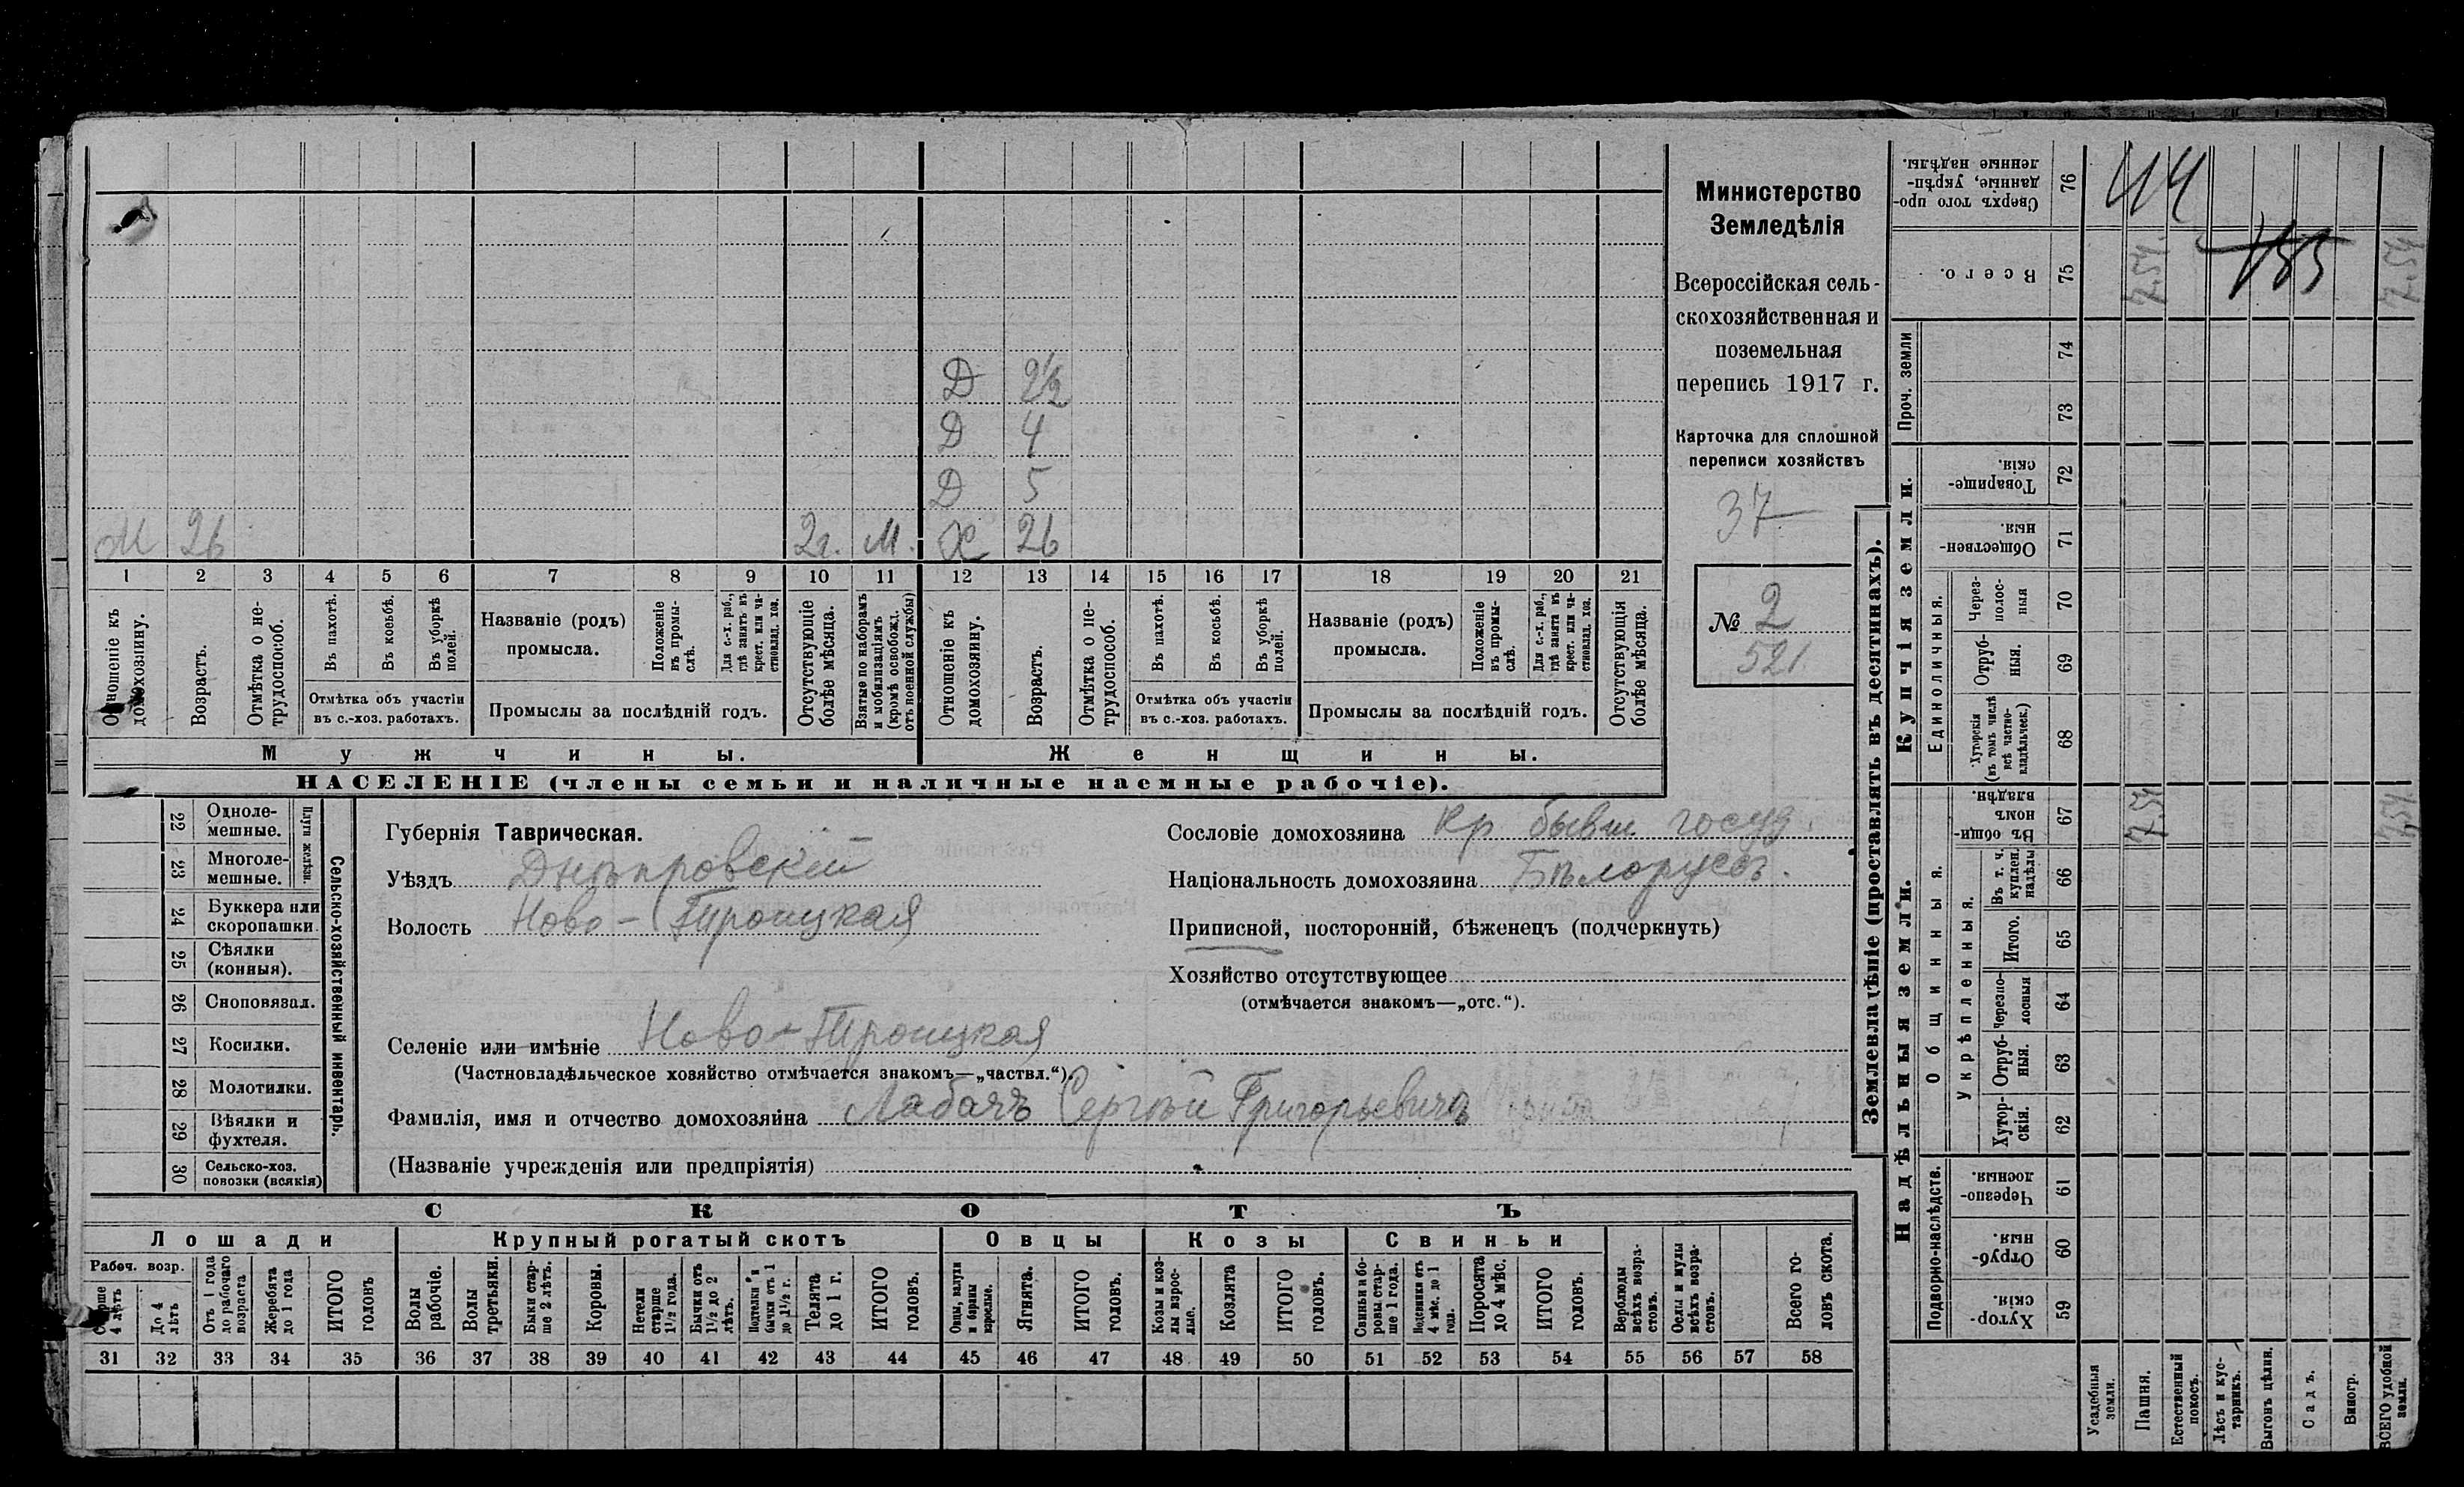 Д 2½
Д 4
Д 5
М 26 2г. М. Х 26
1 2 3 4 5 6 7 8 9 10 11 12 13 14 15 16 17 18 19 20 21
Отношеніе къ домохозяину.
Возрастъ.
Отмѣтка о не-
трудоспособ.
Въ пахотѣ.
Въ косьбѣ.
Въ уборкѣ
полей.
Отмѣтка объ участіи
въ с.-хоз. работахъ.
Названіе (родъ)
промысла.
Положеніе
въ промы-
слѣ.
Для с.-х. раб.,
гдѣ занятъ въ
крест. или ча-
стновлад. хоз.
Промыслы за послѣдній годъ.
Отсутствующіе
болѣе мѣсяца.
Взятые по наборамъ
и мобилизаціямъ
(кромѣ освобожд.
отъ военной службы)
Отношеніе къ
домохозяину.
Возрастъ.
Отмѣтка о не-
трудоспособ.
Въ пахотѣ.
Въ косьбѣ.
Въ уборкѣ
полей.
Отмѣтка объ участіи
въ с.-хоз. работахъ.
Названіе (родъ)
промысла.
Положеніе
въ промы-
слѣ.
Для с.-х. раб.,
гдѣ занята въ
крест. или ча-
стновлад. хоз.
Промыслы за послѣдній годъ.
Отсутствующія
болѣе мѣсяца.
Мужчины. Женщины.
НАСЕЛЕНІЕ (члены семьи и наличные наемные рабочіе).
Министерство
Земледѣлія
Всероссійская сель-
скохозяйственная и
поземельная
перепись 1917 г.
Карточка для сплошной
переписи хозяйствъ
37
№ 2
521
22 Одноле-
мешные.
23 Многоле-
мешные.
Плуги желѣзн.
24 Буккера или
скоропашки.
25 Сѣялки
(конныя).
26 Сноповязал.
27 Косилки.
28 Молотилки.
29 Вѣялки и
фухтеля.
30 Сельско-хоз.
повозки (всякія)
Сельско-хозяйственный инвентарь.
Губернія Таврическая.
Уѣздъ Днѣпровскій
Волость Ново-Троицкая
Селеніе или имѣніе Ново-Троицкая
(Частновладѣльческое хозяйство отмѣчается знакомъ—„частвл.“).
Фамилія, имя и отчество домохозяйна Лабачъ Сергѣй Григорьевичъ
(Названіе учрежденія или предпріятія)
Сословіе домохозяина кр бывш госуд.
Національность домохозяина Бѣлорусъ.
Приписной, посторонній, бѣженецъ (подчеркнуть)
Хозяйство отсутствующее
(отмѣчается знакомъ—„отс.“).
СКОТЪ
Лошади Крупный рогатый скотъ Овцы Козы Свиньи
Рабоч. возр.
Старше
4 лѣтъ
До 4
лѣтъ
Отъ 1 года
до рабочаго
возраста
Жеребята
до 1 года
ИТОГО
головъ
Волы
рабочіе.
Волы
третьяки.
Быки стар-
ше 2 лѣтъ.
Коровы.
Нетели
старше
1½ года.
Бычки отъ
1½ до 2
лѣтъ.
Подтелки и
бычки отъ 1
до 1½ г.
Телята
до 1 г.
ИТОГО
головъ.
Овцы, валухи
и бараны
взрослые.
Ягнята.
ИТОГО
головъ.
Козы и коз-
лы взрос-
лые.
Козлята
ИТОГО
головъ.
Свиньи и бо-
ровы стар-
ше 1 года.
Подсвинки отъ
4 мѣс. до 1
года.
Поросята
до 4 мѣс.
ИТОГО
головъ.
Верблюды
всѣхъ возра-
стовъ.
Ослы и мулы
всѣхъ возра-
стовъ.
Всего го-
ловъ скота.
31 32 33 34 35 36 37 38 39 40 41 42 43 44 45 46 47 48 49 50 51 52 53 54 55 56 57 58
Землевладѣніе (проставлять въ десятинахъ).
Сверхъ того про-
данные, укрѣп-
ленные надѣлы.
76
414
Всего.
75
7.54. 185 7.54
Проч. земли
74
73
Купчія земли.
Товарище-
скія.
72
Обществен-
ныя.
71
Единоличныя.
Через-
полос-
ныя
70
Отруб-
ныя.
69
Хуторскія
(въ томъ числѣ
всѣ частно-
владѣльческ.)
68
Надѣльныя земли.
Общинныя.
Въ общи-
номъ
владѣн.
67
7.54 7.54
Укрѣпленныя.
Въ т. ч.
куплен.
надѣлы
66
Итого.
65
Черезпо-
лосныя
64
Отруб-
ныя.
63
Хутор-
скія.
62
Подворно-наслѣдств.
Черезпо-
лосныя.
61
Отруб-
ныя.
60
Хутор-
скія.
59
Усадебныя
земли.
Пашня.
Естественный
покосъ.
Лѣсъ и кус-
тарникъ.
Выгонъ цѣлин.
Садъ.
Виногр.
ВСЕГО удобной
земли.